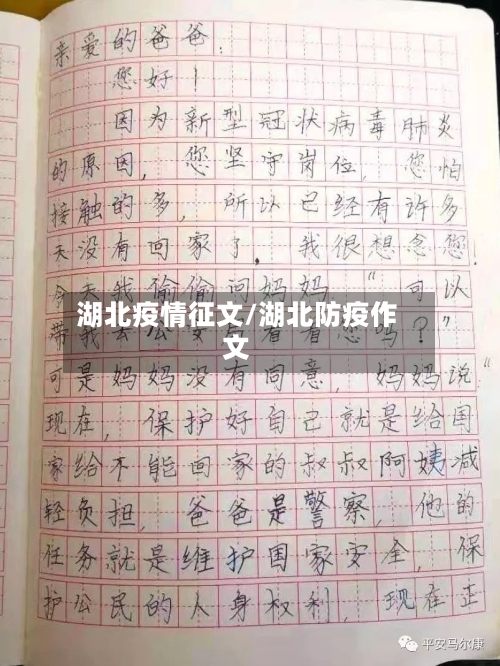 亲爱的爸爸:
您好!
因为新型冠状病毒肺炎
的原因,您坚守岗位,您怕
接触的多,所以已经有许多
天没有回家了,我很想念您!
今天我偷偷问妈妈"可以
湖北疫情征文/湖北防疫作
文
带我去公安局看看爸妈吗?"
可是妈妈没有同意,妈妈说:
现在,保护好自己就是给国
家给不能回家的叔叔阿姨减
轻负担,爸爸是警察,他的
任务就是维护国家安全,保
护公民的人身权利,现在正
平安马尔康